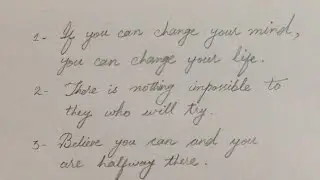 1- If you can change your mind,
you can change your life.
2- There is nothing impossible to
they who will try.
3- Believe you can and you
are halfway there.